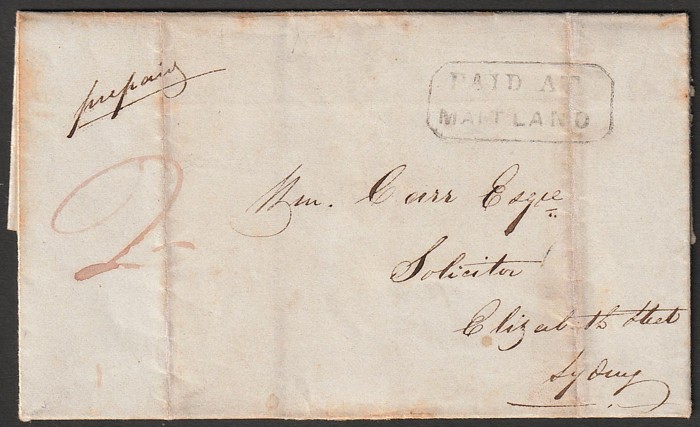 prepaid
PAID AT
MAITLAND
2
Wm. Carr Esqre
Solicitor
Elizabeth Street
Sydney